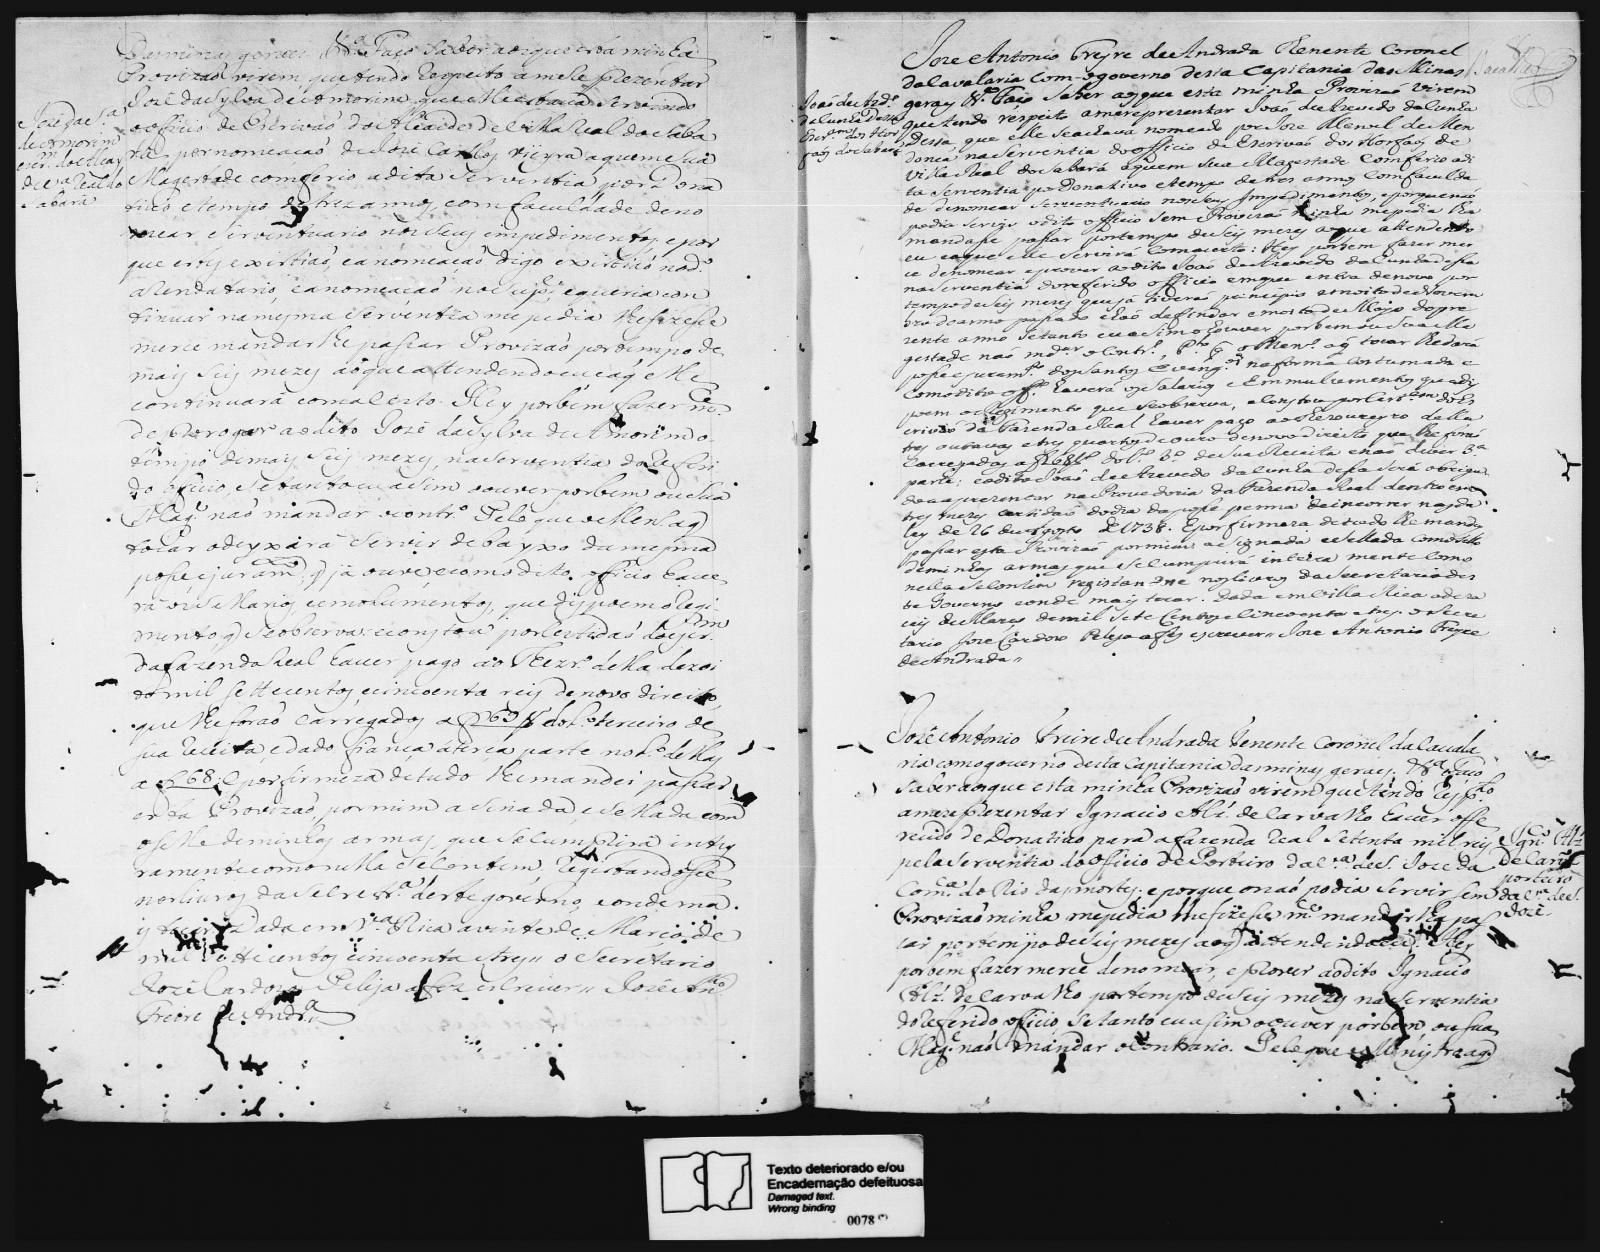 Dasminas geraes &.ª Faço saber aosque esta minha
Provizaõ virem que tendo Respeito ameReprezentar
Joze daSylva deAmorim que elle estava servindo
oofficio de Escrivaõ do Alcaide de Villa Real do Saba
rá por nomeacaõ de Joze Carlos Vieyra aquem Sua
Magestade comferio adita Serventia por dona
tivo etempo de trez annos, com faculdade deno
mear serventuario nos seus empedimentos, epor
que estes existiaõ, eanomeaçaõ digo existiaõ nod.º
aRendatario, eanomeacaõ no Sup.e, equeria con
tinuar namesma Serventia mepedia lhefizesse
merce mandarlhe passar Provizaõ portempo de
mais seis mezes aoque attendendo eu eaq elle
continuará comacerto. Hey porbem fazer m.ce
de Prorogar aodito Joze daSylva de Amorim o
tempo demais seis mezes, naserventia doReferi
do officio, setanto eu asim ouver porbem ou Sua
Mag.e naõ mandar ocontr.º Pelo que oMen.al aq
tocar odeyxará servir debayxo damesma
posse ejuram.to q já ouve ecomodito officio have
rá osSellarios, eemolumentos, que dispoem oRegi
mento q seobserva: econstou porCertidaõ doescr.am
dafazenda Real haver pago ao Thezr.º della dezoi
to mil settecentos ecincoenta reis denovo direito
que lhe foraõ Carregados a f 67 V do L.º terceiro de
sua Receita, edado fiança aterça parte no L.º dellas
a f 68. E por firmeza detudo lhe mandei passar
esta Provizaõ por mim asinada e Sellada com
oselle deminhas armas, que secumprirá intey
ramente como nella secontem, Registandosse
nos livros da Secret.ª deste governo, eonde ma
is tocar. Dada em V.ª Rica avinte de Marco de
mil settecentos cincoenta etres // o Secretario
Joze Cardozo Peleja afez escrever // Joze Ant.º
Freire de Andr.ª
Joze daS.ª
deAmorim
escr.am doAlcay
de V.ª Real do
Sabará
Joze Antonio Freyre deAndrada Thenente Coronel
daCavalaria Com ogoverno desta Capitania das Minas
geraes &.ª Faço Saber aosque esta minha Provizaõ virem
que tendo respeito amereprezentar Joaõ deAzevedo daCunha
Dessa, que elle seachava nomeado por Joze Manoel de Men
donca naServentia do officio de Escrivaõ dos Horfaõs de
Villa Real do Sabará aquem Sua Magestade Comferio adi
ta Serventia por Donativo etempo de tres annos Com faculda
de denomear Serventuario nosseus Impedimentos, eporquenaõ
podia servir odito officio sem Provizaõ minha mepedia lha
mandasse passar portempo deseis mezes aoque attendendo
eu eaque elle servirá Comacerto: Hey porbem fazer mer
ce denomear eprover aodito Joaõ deAzevedo daCunha dessa
naserventia doreferido officio emque entra denovo por
tempo deseis mezes queja tiveraõ principio emoito deNovem
bro doanno passado ehaõ defindar emoito de Mayo dopre
zente anno Setanto eu asim ouver porbem ou Sua Ma
gestade naõ md.ar oContr.º, P.lo q oMen.al aq tocar lhedará
posse ejuram.to dosSantos Evang.os naforma Costumada e
Comodito off.º haverá osSalarios eEmmulumentos quedis
poem oRegimento que seobserva, eConstou porCert.am doEs
crivaõ da Fazenda Real haver pago aoThezoureyro della
tres outavas etres quartos deouro denovos direitos que lheforaõ
Carregados af 68 V do L.º 3.º de Sua Receita enaõ dever 3.ª
parte; eodito Joaõ deAzevedo daCunha dessa será obriga
do aaprezentar naProvedoria daFazenda Real dentro em
tres mezes certidaõ dodia daposse penna deincorrer nas da
ley de 26 de Agosto de 1738. Eporfirmeza detudo lhe mandey
passar esta Provizaõ pormim asignada eSellada Comosello
deminhas armas que Secumpirá inteira mente Como
nella seContem registandose noslivros da Secretaria des
te Governo eonde mais tocar. Dada em Villa Rica adeza
seis de Março demil Sete Centos eCincoenta etres. oSecre
tario Joze Cardozo Peleja afes escrever // Joze Antonio Freyre
deAndrada //
Joaõ de Azd.º
daCunha Dessa
Escr.am dos Hor
faõs do Sabará
Joze Antonio Freire de Andrada Tenente Coronel da Cavala
ria comogoverno desta Capitania dasminas geraes. &.ª Faço
saber aosque esta minha Provizaõ virem que tendo resp.to
ameReprezentar Ignacio Alz. de Carvalho haver offe
recido de Donativo para afazenda real setenta mil reis
pela serventia do officio de Porteiro da V.ª de S. Joze da
Com.ca do Rio das mortes; e porque onaõ podia servir sem
Provizaõ minha mepedia lhefizesse m.ce mandarlha pas
sar portempo deseis mezes aoq attendendo eu: Hey
porbem fazer merce denomear, e prover aodito Ignacio
Alz. de Carvalho portempo deseis mezes naserventia
doreferido officio, setanto eu asim oouver porbem, ou Sua
Mag.e naõ mandar ocontrario. Pelo que oMinistro aq
Ign.º Alz
de Carv.º
porteiro
da V.ª de S.
Joze.
Texto deteriorado e/ou
Encadernação defeituosa
Damaged text.
Wrong binding
0078